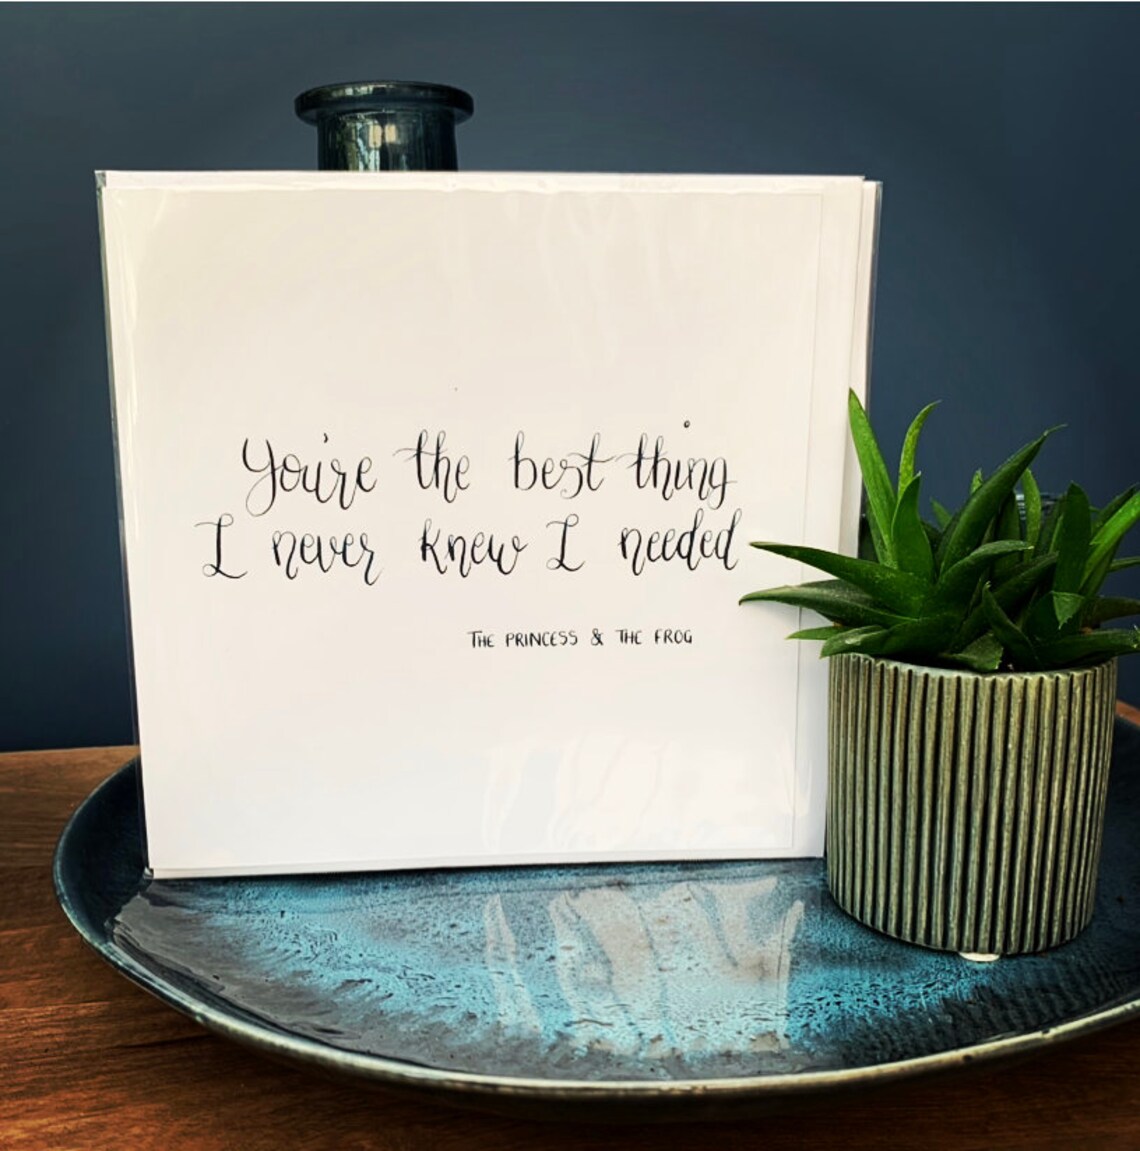 You're the best thing
I never knew I needed
THE PRINCESS & THE FROG